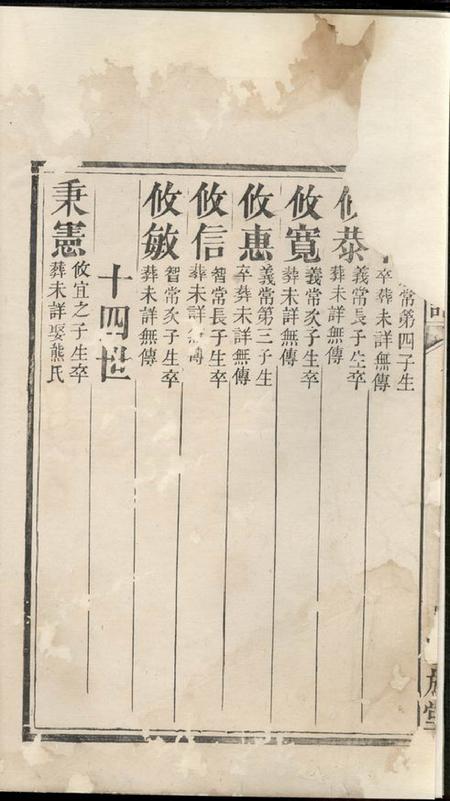 常第四子生
卒葬未詳無傳
攸恭
義常長子生卒
葬未詳無傳
攸寬
義常次子生卒
葬未詳無傳
攸惠
義常第三子生
卒葬未詳無傳
攸信
智常長子生卒
葬未詳無傳
攸敏
智常次子生卒
葬未詳無傳
十四世
秉憲
攸宜之子生卒
葬未詳娶熊氏
堂